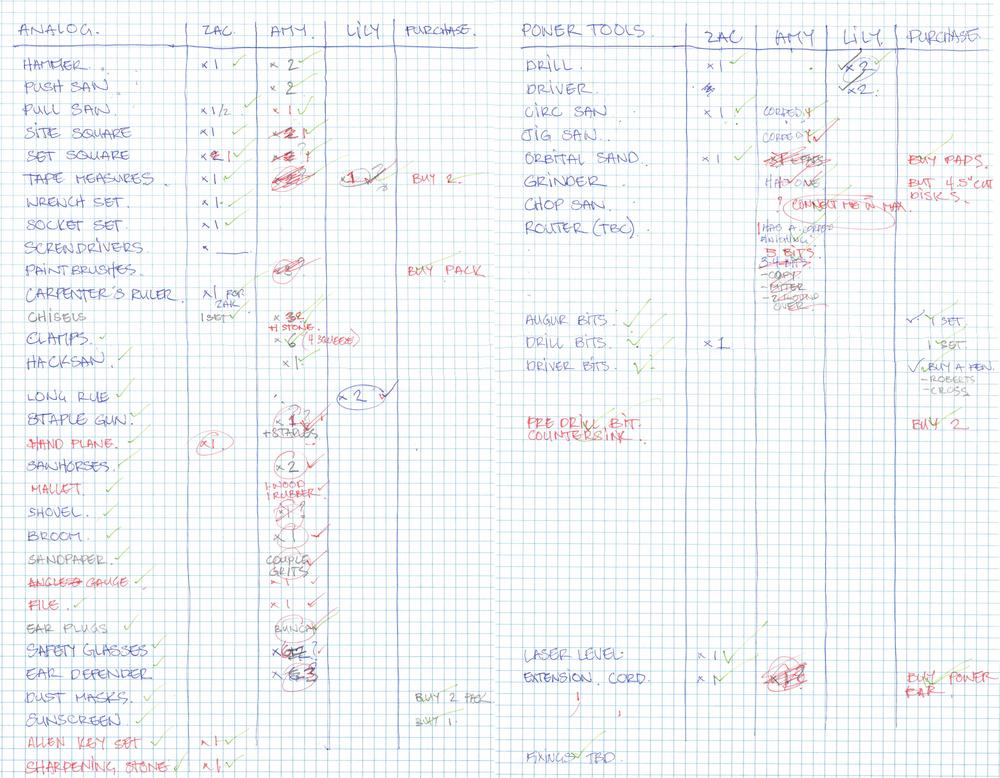 ANALOG. ZAC. AMY. LILY PURCHASE.
HAMMER. x1 x2
PUSH SAW. x2
PULL SAW. x1/2 x1
SITE SQUARE x1 1
SET SQUARE x1
TAPE MEASURES. x1 x1 BUY 2.
WRENCH SET. x1
SOCKET SET. x1
SCREWDRIVERS.
PAINTBRUSHES. BUY PACK
CARPENTER'S RULER. x1 FOR
ZAK
CHISELS 1 SET x 3
+1 STONE.
CLAMPS. x6 (4 SQUEEZE)
HACKSAW. x1
LONG RULE x2
STAPLE GUN. x1?
+STAPLES
HAND PLANE. x1
SAWHORSES. x2
MALLET. 1 WOOD
1 RUBBER
SHOVEL. x1?
BROOM. x1
SANDPAPER. COUPLE
GRITS
ANGLE GAUGE x1
FILE. x1
EAR PLUGS BUNCH
SAFETY GLASSES ?
EAR DEFENDER x 3
DUST MASKS. BUY 2 PACK
SUNSCREEN. BUY 1.
ALLEN KEY SET x1
SHARPENING STONE x1
POWER TOOLS. ZAC AMY LILY. PURCHASE.
DRILL. x1 x2
DRIVER. x2.
CIRC SAW x1 CORDED
JIG SAW. CORDED
ORBITAL SAND. x1 BUY PADS.
GRINDER HAS ONE BUT 4.5" CUT
DISKS.
CHOP SAW. ? CONNECT ME W MAX.
ROUTER (TBC) 1 HAS A CORDED
FINISHING
5 BITS.
3-4 BITS
-COPY
-MITER
-2 ROUND
OVER.
AUGUR BITS. 1 SET.
DRILL BITS. x1 1 SET.
DRIVER BITS. BUY A FEW.
-ROBERTS
-CROSS
PRE DRILL BIT. BUY 2
COUNTERSINK.
LASER LEVEL. x1
EXTENSION CORD. x1 BUY POWER
BAR.
FIXINGS TBD.